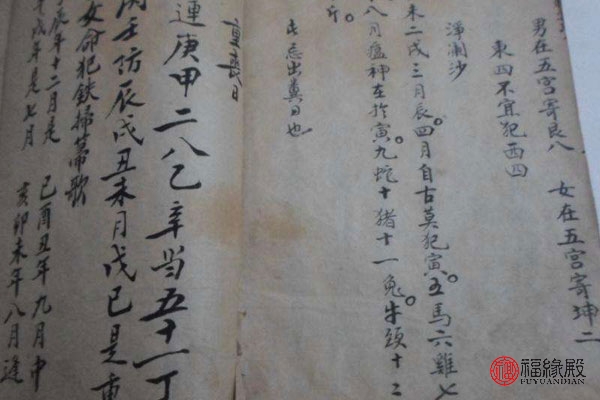 男在五宫寄良八 女在五宫寄坤二
東四不宜犯西四
淨澜沙
未二戌三月辰。四月自古莫犯寅。五馬六雞七
八月瘟神在於寅。九蛇十猪十一兔。牛頭十二
忌出糞日也
重喪日
連庚甲二八乙辛当五十一丁
丙壬防辰戌丑未月戊己是重
女命犯鉄掃箒歌
辰年十二月是 己酉丑年九月中
戌年是七月 亥卯未年八月逢
福緣殿
FUYUANDIAN